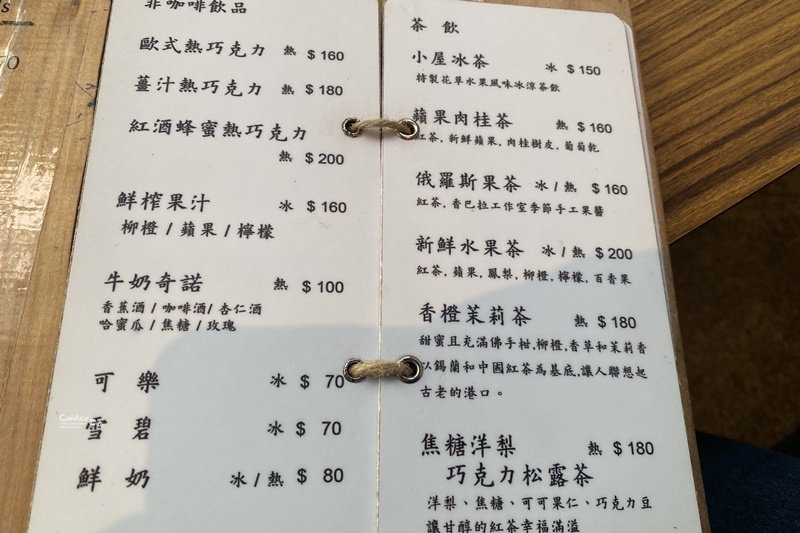 非咖啡飲品
歐式熱巧克力 熱 $160
薑汁熱巧克力 熱 $180
紅酒蜂蜜熱巧克力
熱 $200
鮮榨果汁 冰 $160
柳橙 / 蘋果 / 檸檬
牛奶奇諾 熱 $100
香蕉酒 / 咖啡酒 / 杏仁酒
哈蜜瓜 / 焦糖 / 玫瑰
可樂 冰 $ 70
雪碧 冰 $ 70
鮮奶 冰/熱 $ 80
茶飲
小屋冰茶 冰 $150
特製花草水果風味冰涼茶飲
蘋果肉桂茶 熱 $160
紅茶, 新鮮蘋果, 肉桂樹皮, 葡萄乾
俄羅斯果茶 冰/熱 $160
紅茶, 香巴拉工作室季節手工果醬
新鮮水果茶 冰/熱 $200
紅茶, 蘋果, 鳳梨, 柳橙, 檸檬, 百香果
香橙茉莉茶 熱 $180
甜蜜且充滿佛手柑,柳橙,香草和茉莉香
以錫蘭和中國紅茶為基底,讓人聯想起
古老的港口。
焦糖洋梨 熱 $180
巧克力松露茶
洋梨、焦糖、可可果仁、巧克力豆
讓甘醇的紅茶幸福滿溢